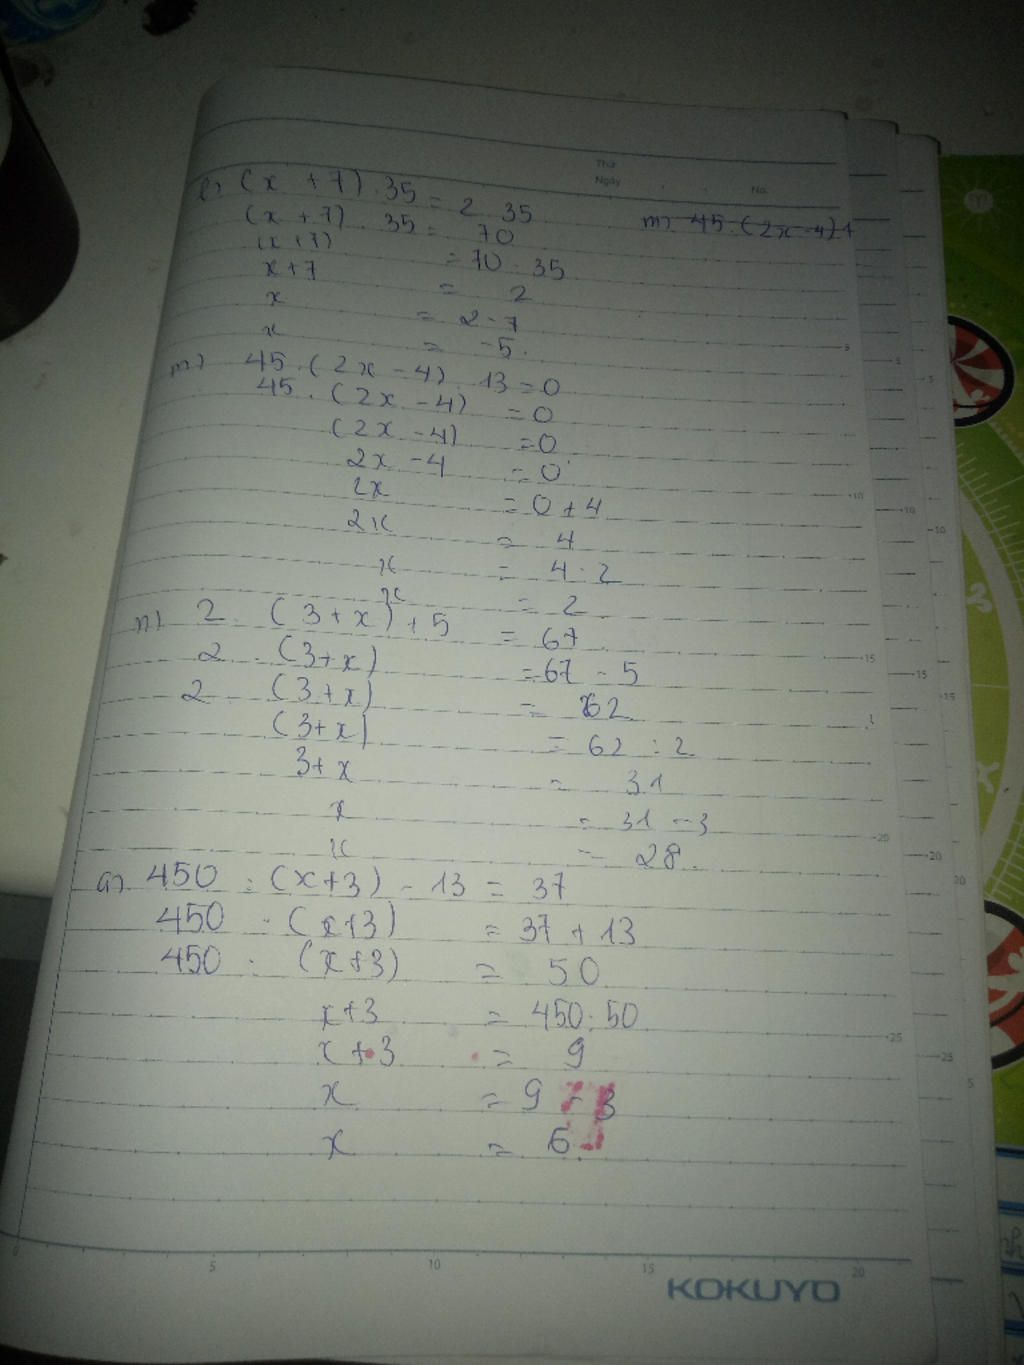 Thứ
Ngày
No.
l) (x + 7) . 35 = 2 . 35
m) 45 . (2x - 4) +
(x + 7) . 35 = 70
(x + 7) = 70 : 35
x + 7 = 2
x = 2 - 7
x = -5.
m) 45 . (2x - 4) . 13 = 0
45 . (2x - 4) = 0
(2x - 4) = 0
2x - 4 = 0
2x = 0 + 4
2x = 4
x = 4 : 2
x = 2
n) 2 . (3 + x) + 5 = 67
2 . (3 + x) = 67 - 5
2 . (3 + x) = 62
(3 + x) = 62 : 2
3 + x = 31
x = 31 - 3
x = 28.
450 : (x + 3) - 13 = 37
450 : (x + 3) = 37 + 13
450 : (x + 3) = 50
x + 3 = 450 : 50
x + 3 = 9
x = 9 - 3
x = 6.
5 10 15 20
KOKUYO